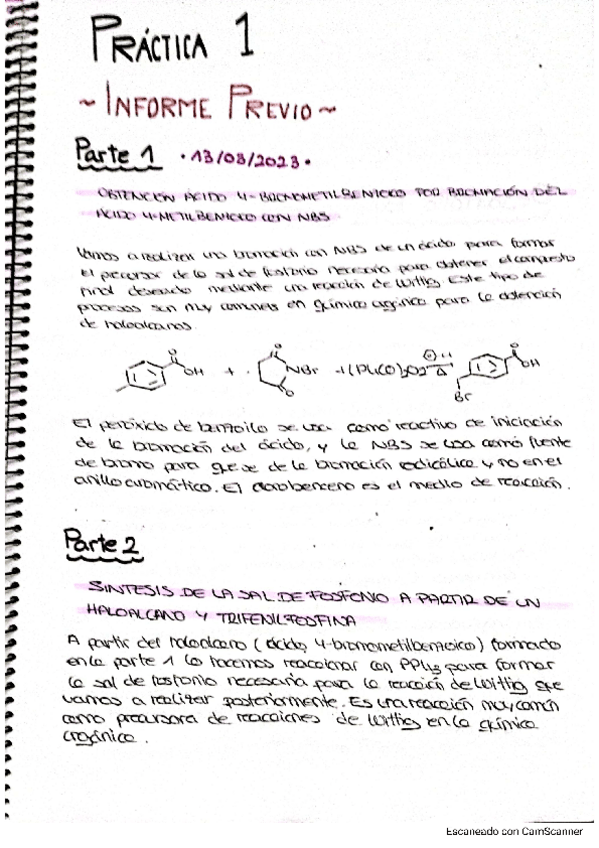 PRÁCTICA 1
~ INFORME PREVIO ~
Parte 1 · 13/03/2023 ·
OBTENCIÓN ÁCIDO 4-BROMOMETILBENZOICO POR BROMACIÓN DEL
ÁCIDO 4-METILBENZOICO CON NBS
Vamos a realizar una bromación con NBS de un ácido para formar
el precursor de la sal de fosfonio necesaria para obtener el compuesto
final deseado mediante una reacción de Wittig. Este tipo de
procesos son muy comunes en química orgánica para la obtención
de haloalcanos.
O OH + O NBr O + (PhCO)2O2 Δ O OH
Br
El peróxido de benzoilo se usa como reactivo de iniciación
de la bromación del ácido, y la NBS se usa como fuente
de bromo para que se de la bromación radicálica y no en el
anillo aromático. El clorobenceno es el medio de reacción.
Parte 2
SINTESIS DE LA SAL DE FOSFONIO A PARTIR DE UN
HALOALCANO Y TRIFENILFOSFINA
A partir del haloalcano (ácido 4-bromometilbenzoico) formado
en la parte 1 lo hacemos reaccionar con para formar
la sal de fosfonio necesaria para la reacción de Wittig que
vamos a realizar posteriormente. Es una reacción muy común
como precursora de reacciones de Wittig en la química
orgánica.
Escaneado con CamScanner